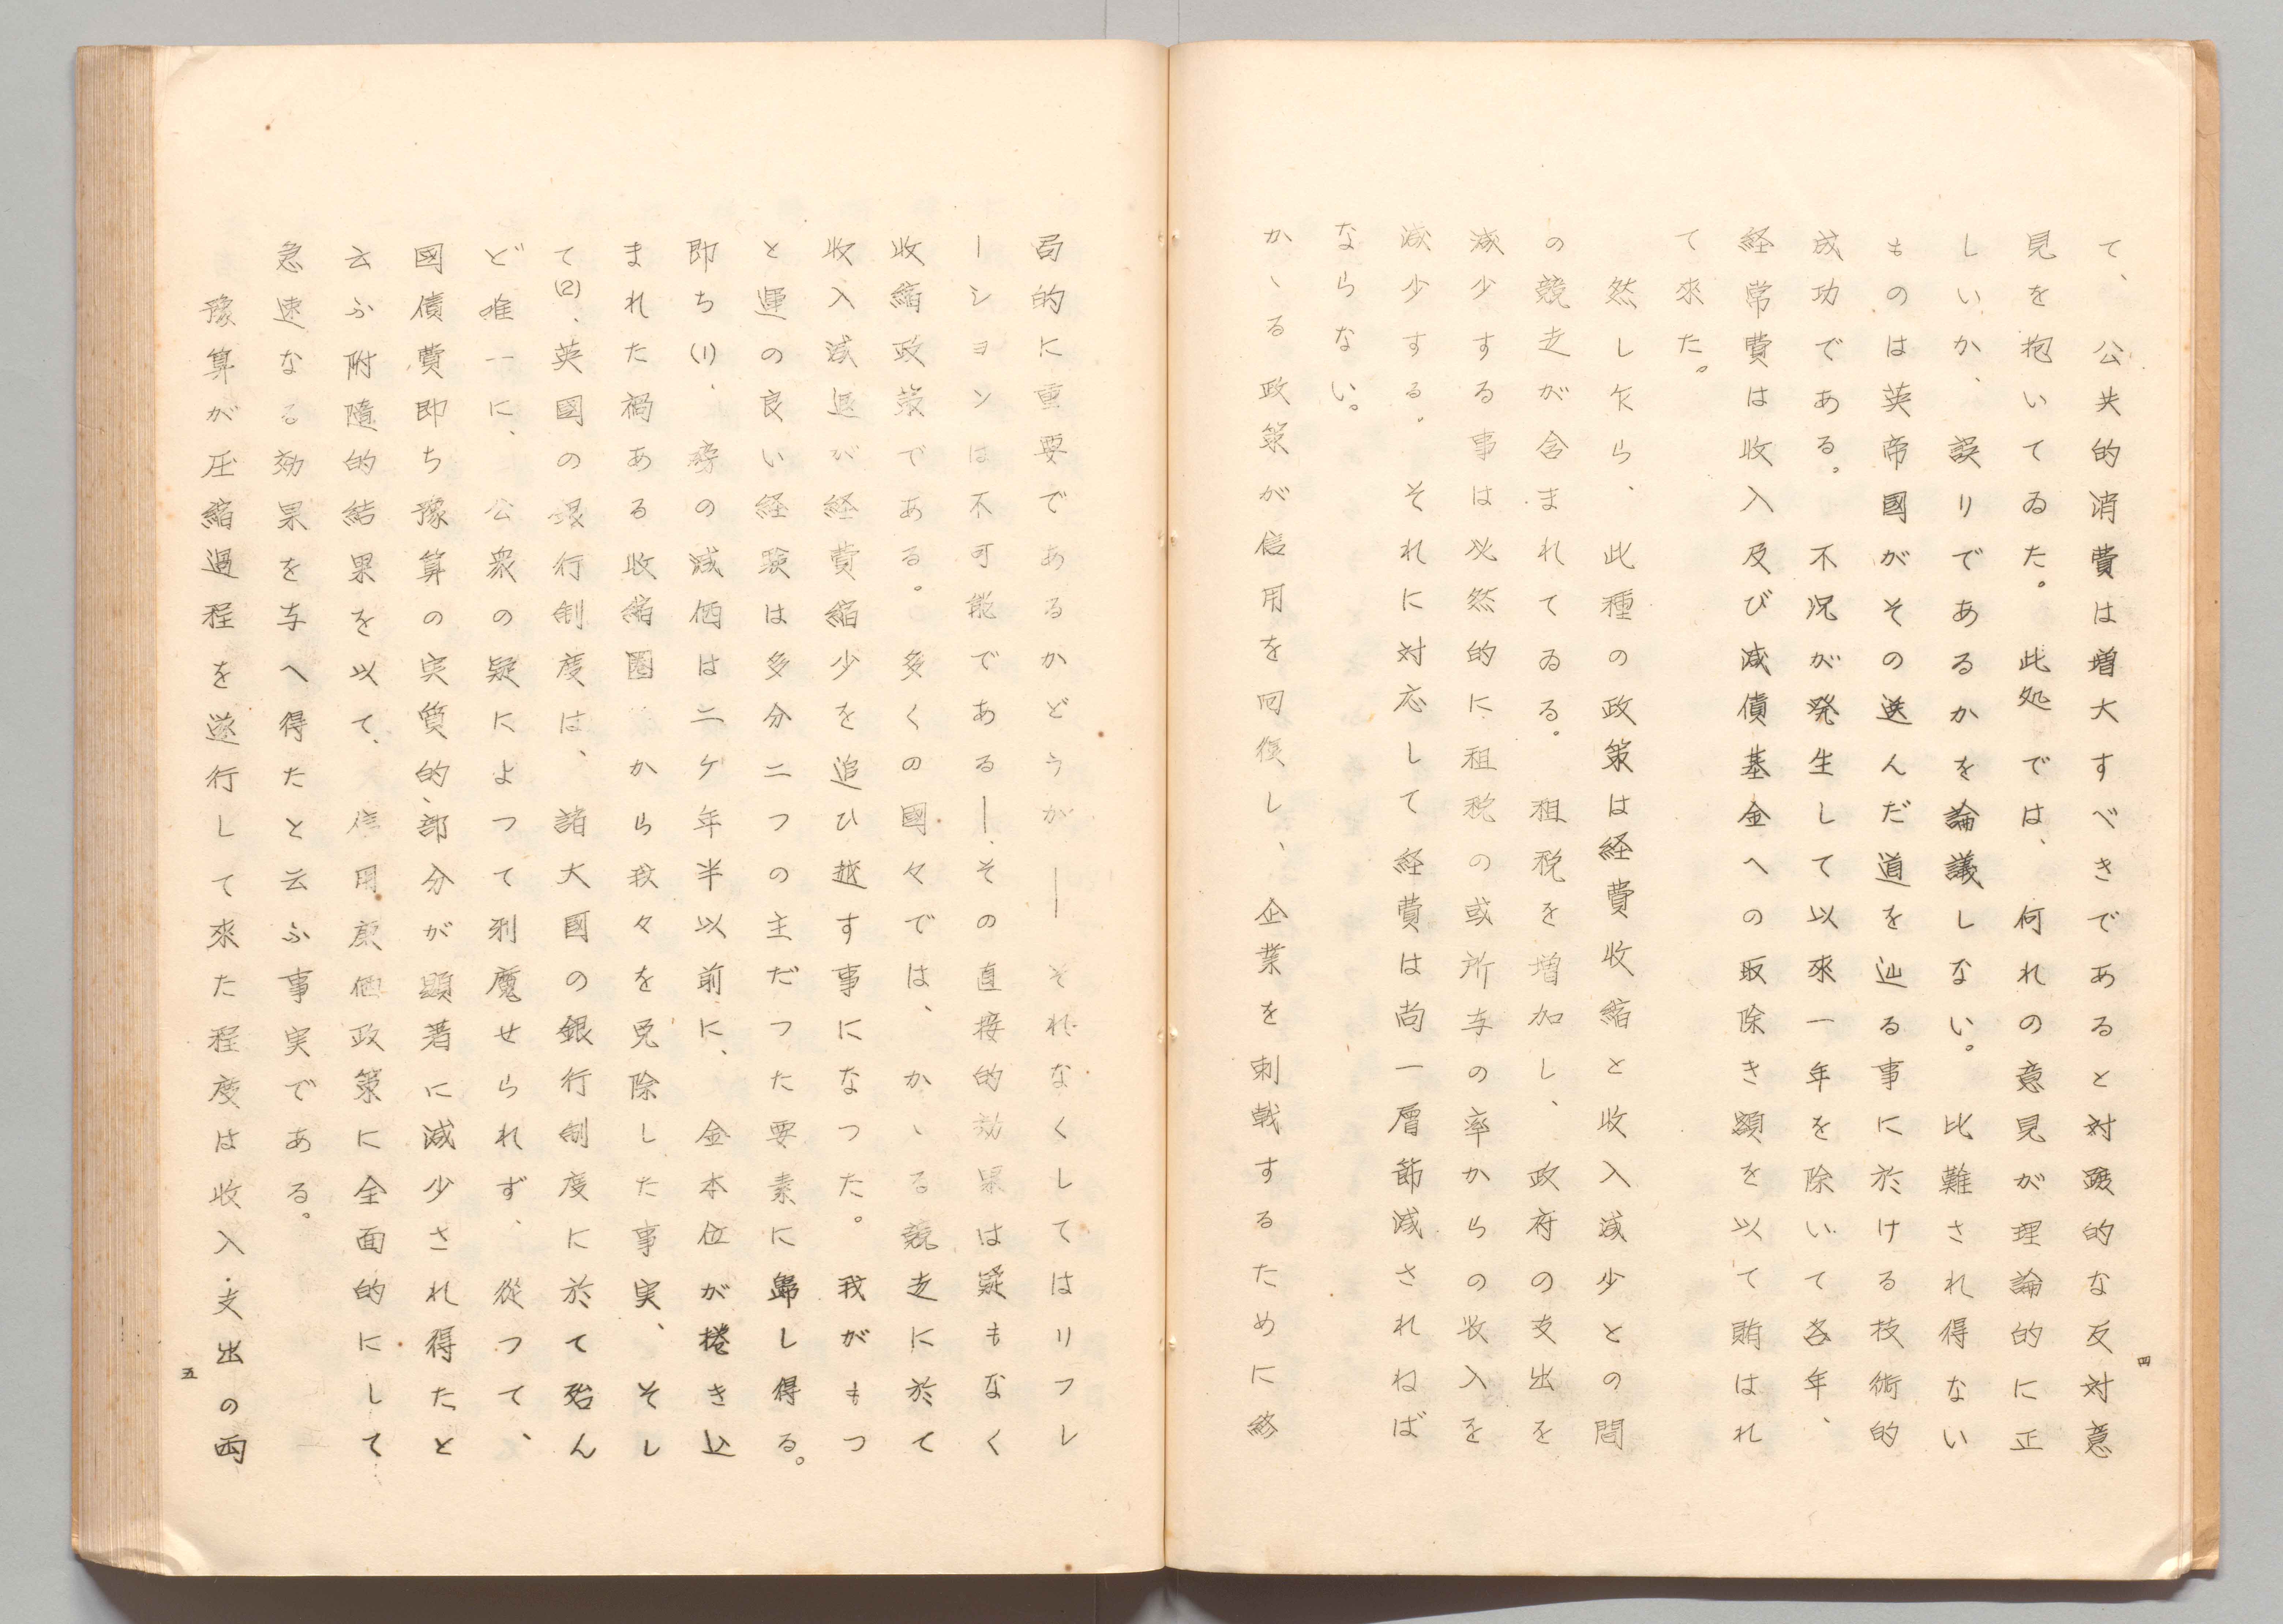 て、公共的消費は増大すべきであると対蹠的な反対意
見を抱いてゐた。此処では、何れの意見が理論的に正
しいか、誤りであるかを論議しない。比難され得ない
ものは英帝國がその送んだ道を辿る事に於ける技術的
成功である。不況が発生して以來一年を除いて各年、
経常費は收入及び減債基金への取除き額を以て賄はれ
て來た。
然し乍ら、此種の政策は経費收縮と收入減少との間
の競走が含まれてゐる。租税を増加し、政府の支出を
減少する事は必然的に租税の或所与の率からの收入を
減少する。それに対応して経費は尚一層節減されねば
ならない。
かゝる政策が信用を回復し、企業を刺戟するために終
四
局的に重要であるかどうか——それなくしてはリフレ
ーションは不可能である—その直接的効果は疑もなく
收縮政策である。多くの國々では、かゝる競走に於て
收入減退が経費縮少を追ひ越す事になつた。我がもつ
と運の良い経験は多分二つの主だつた要素に歸し得る。
即ち(1)、磅の減価は二ケ年半以前に、金本位が捲き込
まれた禍ある收縮圏から我々を免除した事実、そし
て(2)、英國の銀行制度は、諸大國の銀行制度に於て殆ん
ど唯一に、公衆の疑によつて邪魔せられず、從つて、
國債費即ち豫算の実質的部分が顕著に減少され得たと
云ふ附隨的結果を以て、信用廉価政策に全面的にして
急速なる効果を与へ得たと云ふ事実である。
豫算が圧縮過程を遂行して來た程度は收入・支出の両
五